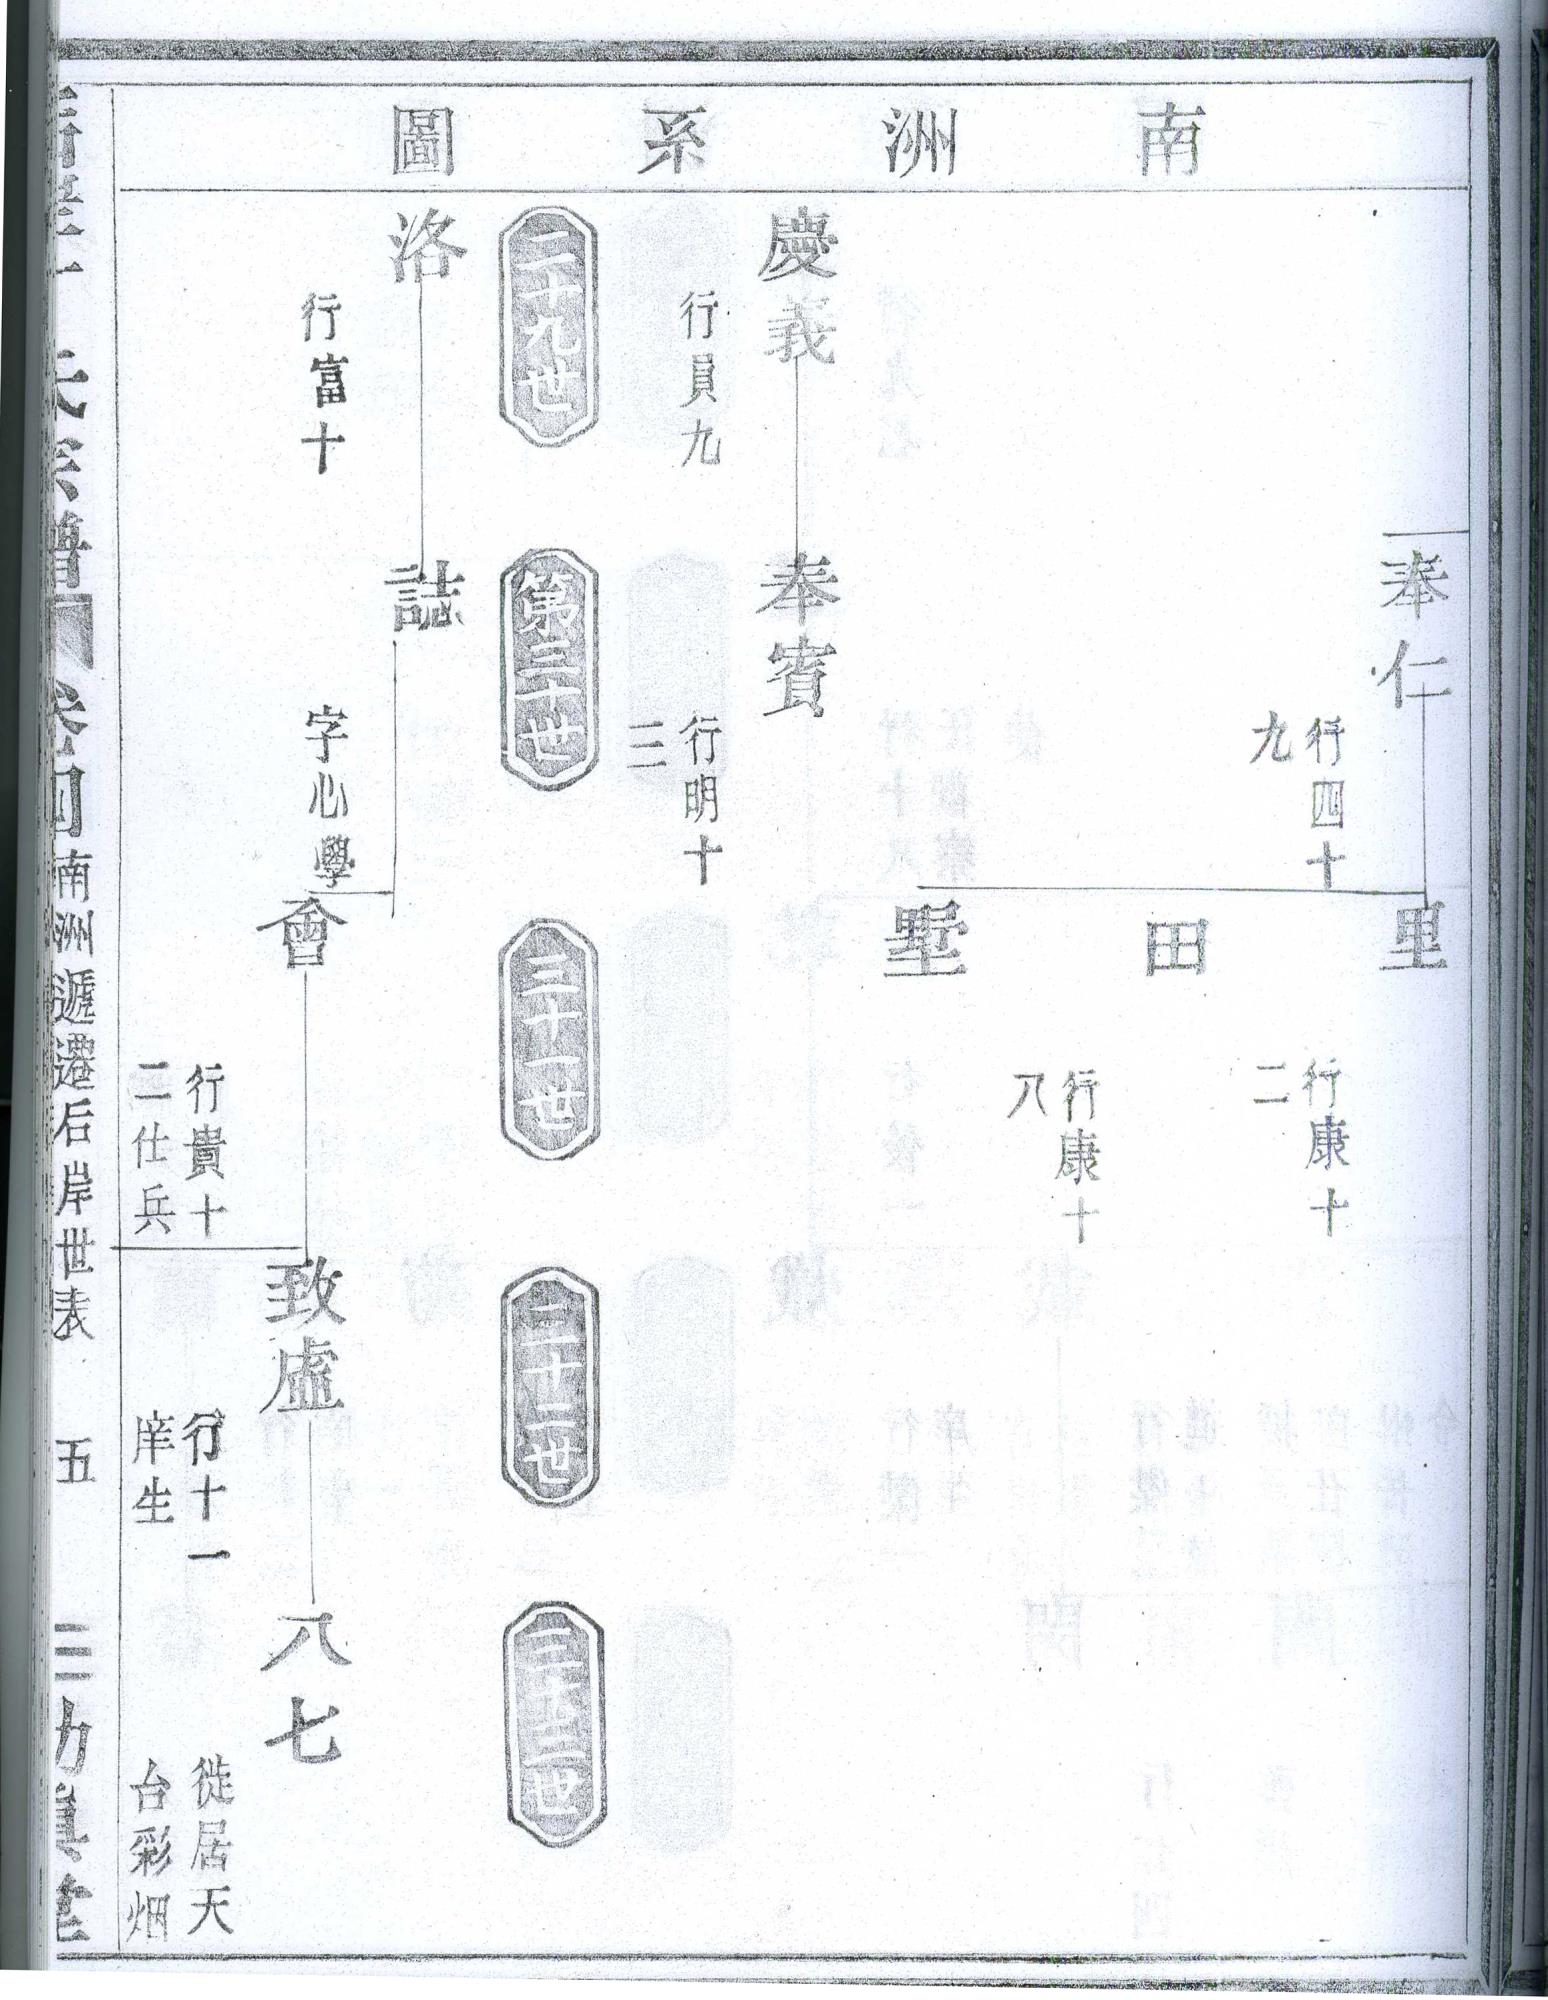 南洲系圖
奉仁
行四十
九
里
行康十
二
田
行康十
八
墅
慶義
行員九
奉賓
行明十
三
二十九世
第三十世
三十一世
三十二世
三十三世
洛
行富十
誌
字心學
會
行貴十
二仕兵
致虛
行十一
庠生
八七
徙居天
台彩烟
氏宗譜
卷四
南洲遞遷后岸世表
五